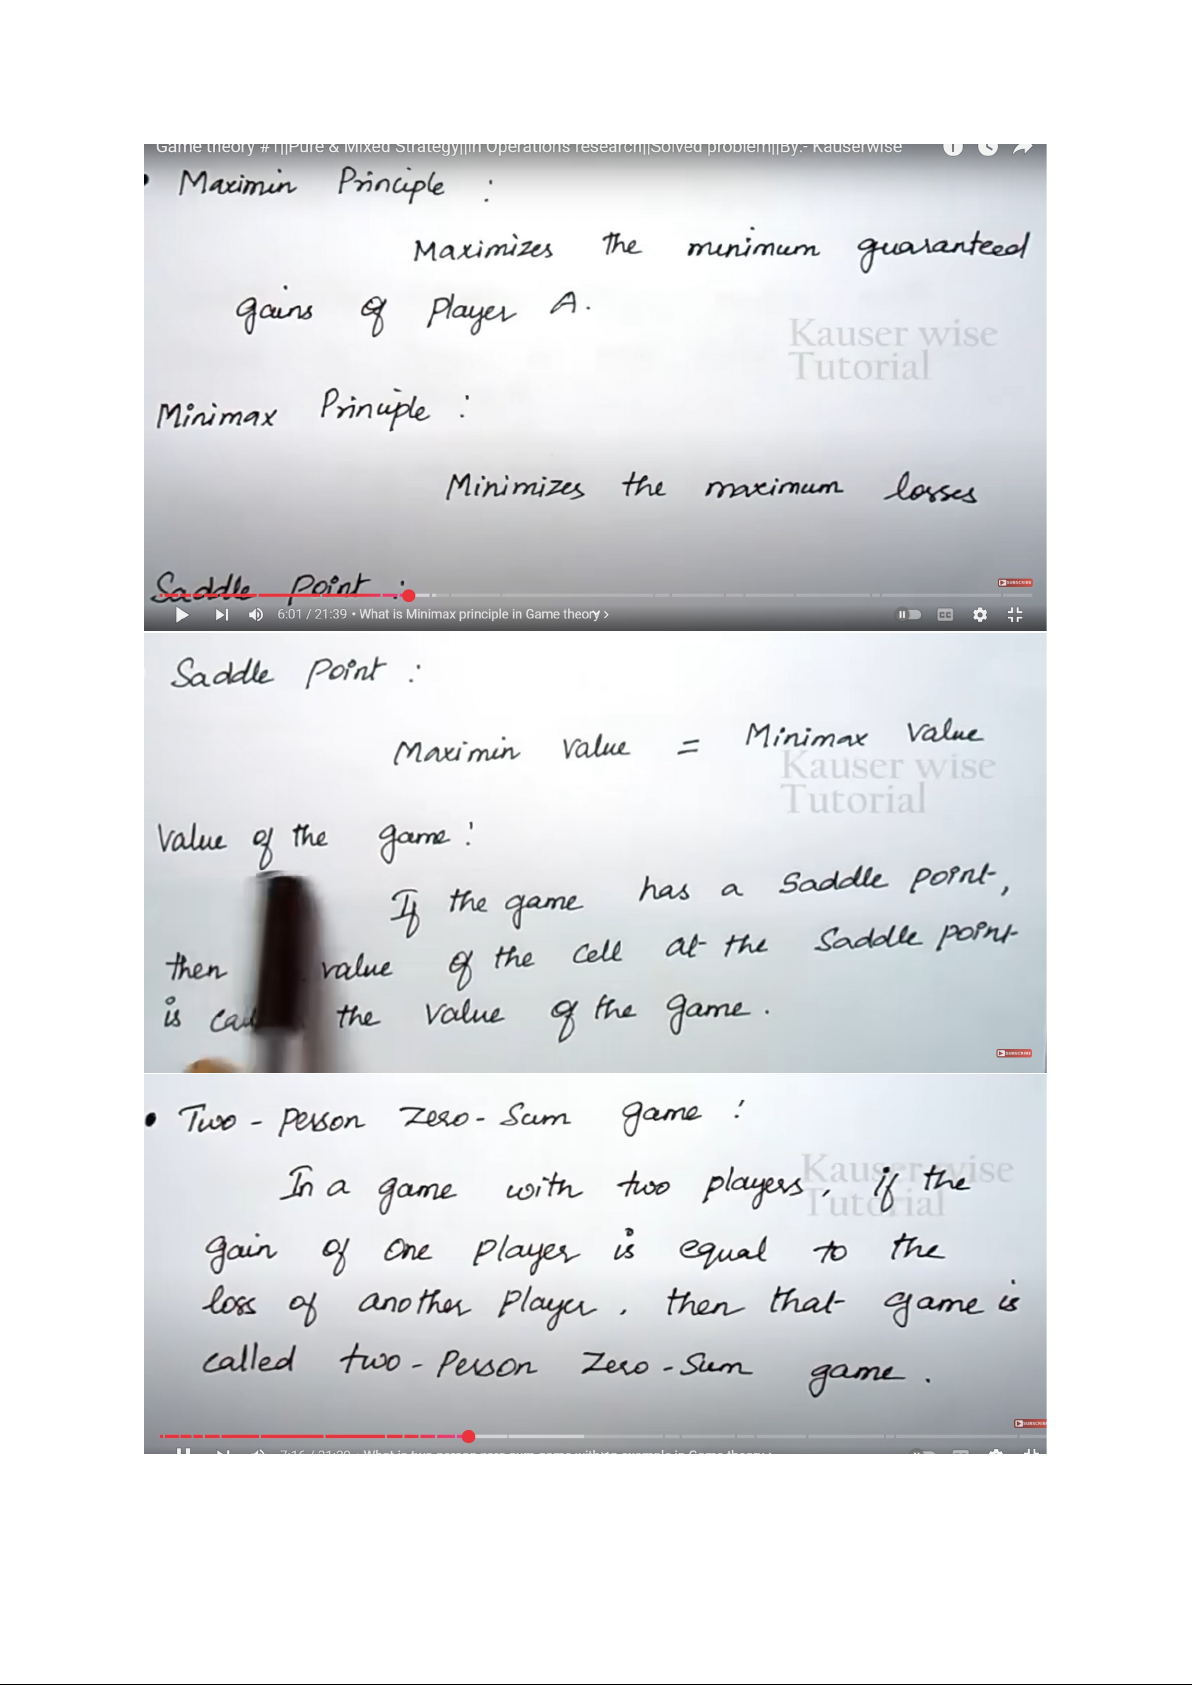 Game theory #1||Pure & Mixed Strategy||in Operations research||Solved problem||By:- Kauserwise
Maximin Principle :
Maximizes the minimum guaranteed
gains of player A.
Kauser wise
Tutorial
Minimax Principle :
Minimizes the maximum losses
Saddle point :
SUBSCRIBE
6:01 / 21:39 • What is Minimax principle in Game theory >
CC
Saddle point :
Maximin value = Minimax value
Kauser wise
Tutorial
Value of the game :
If the game has a saddle point,
then value of the cell at the saddle point
is the value of the game.
SUBSCRIBE
• Two - person zero - sum game :
Kauser wise
Tutorial
In a game with two players, if the
gain of one player is equal to the
loss of another player, then that game is
called two - person zero - sum game.
SUBSCRIBE
7:16 / 21:39 • What is two person zero sum game with an example in Game theory >